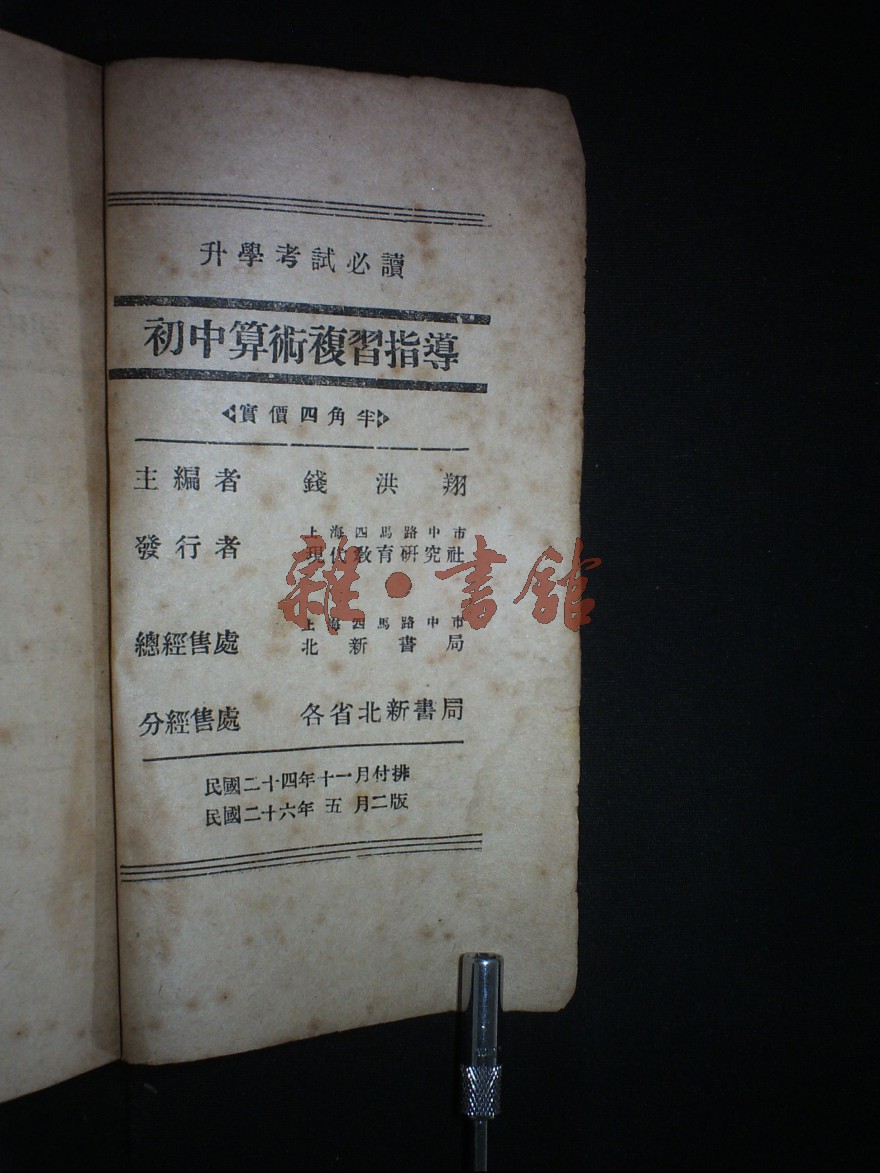 升學考試必讀
初中算術複習指導
實價四角半
主編者 錢洪翔
發行者 上海四馬路中市
現代教育研究社
總經售處 上海四馬路中市
北新書局
分經售處 各省北新書局
民國二十四年十一月付排
民國二十六年五月二版
雜·書館